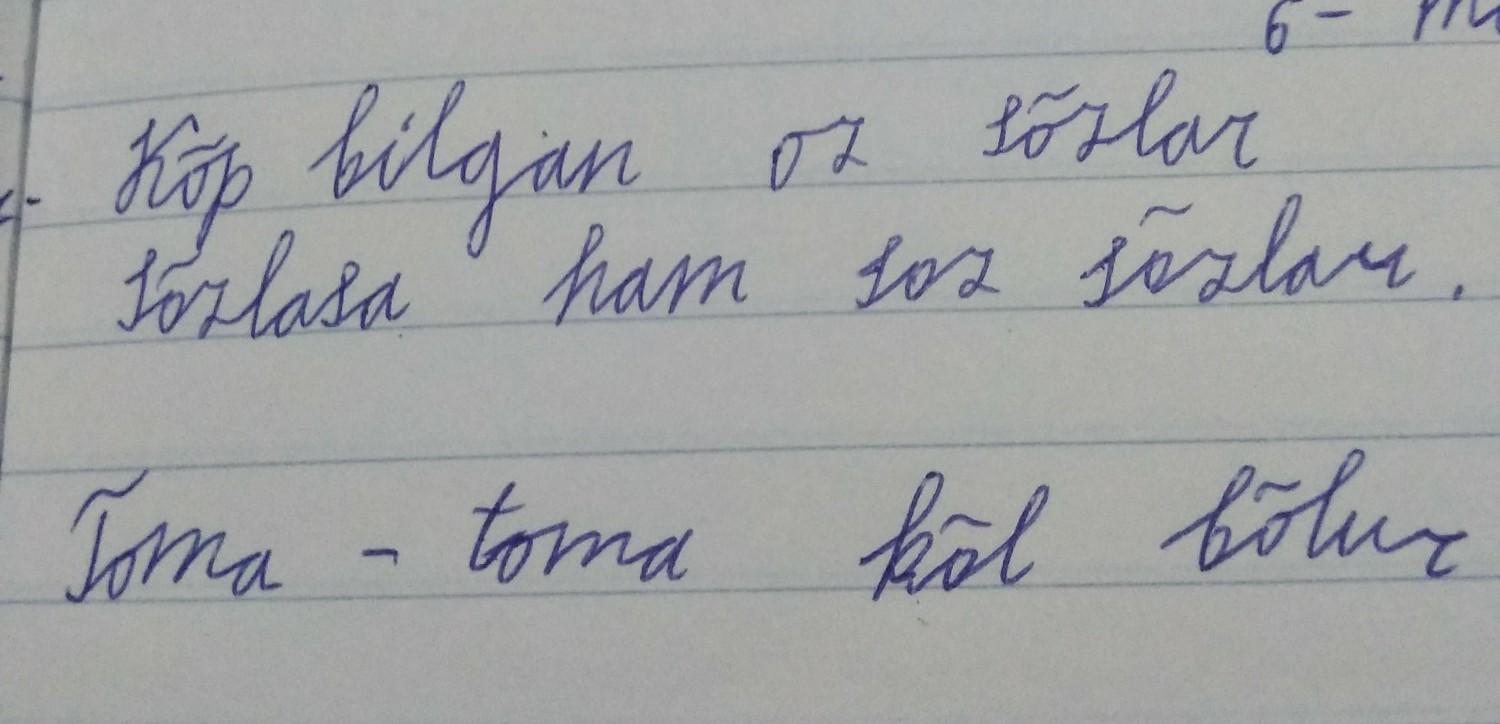 6-
Kõp bilgan oz sõzlar
sõzlasa ham soz sõzlar.
Toma - toma kõl bõlur